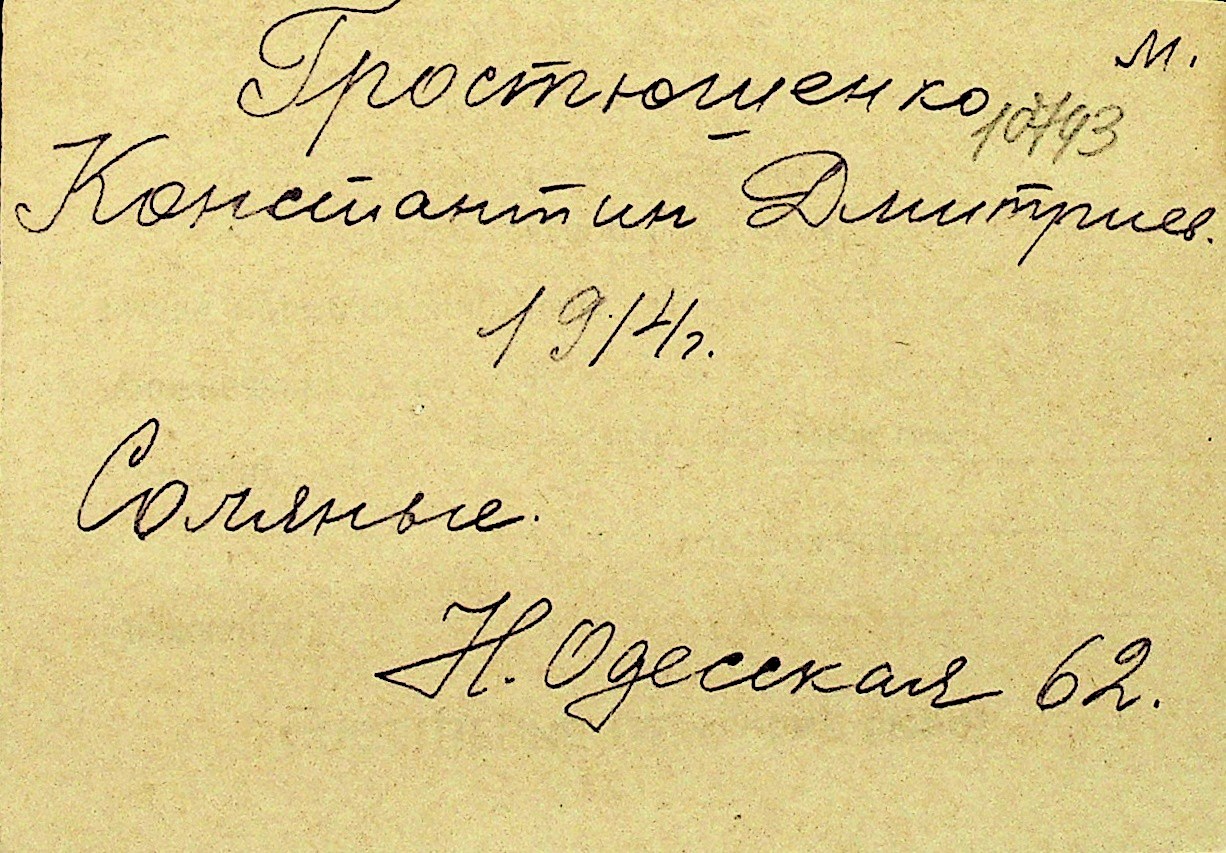 м.
Гростюшенко
Константин Дмитриев.
1914г.
Соляные.
Н. Одесская 62.